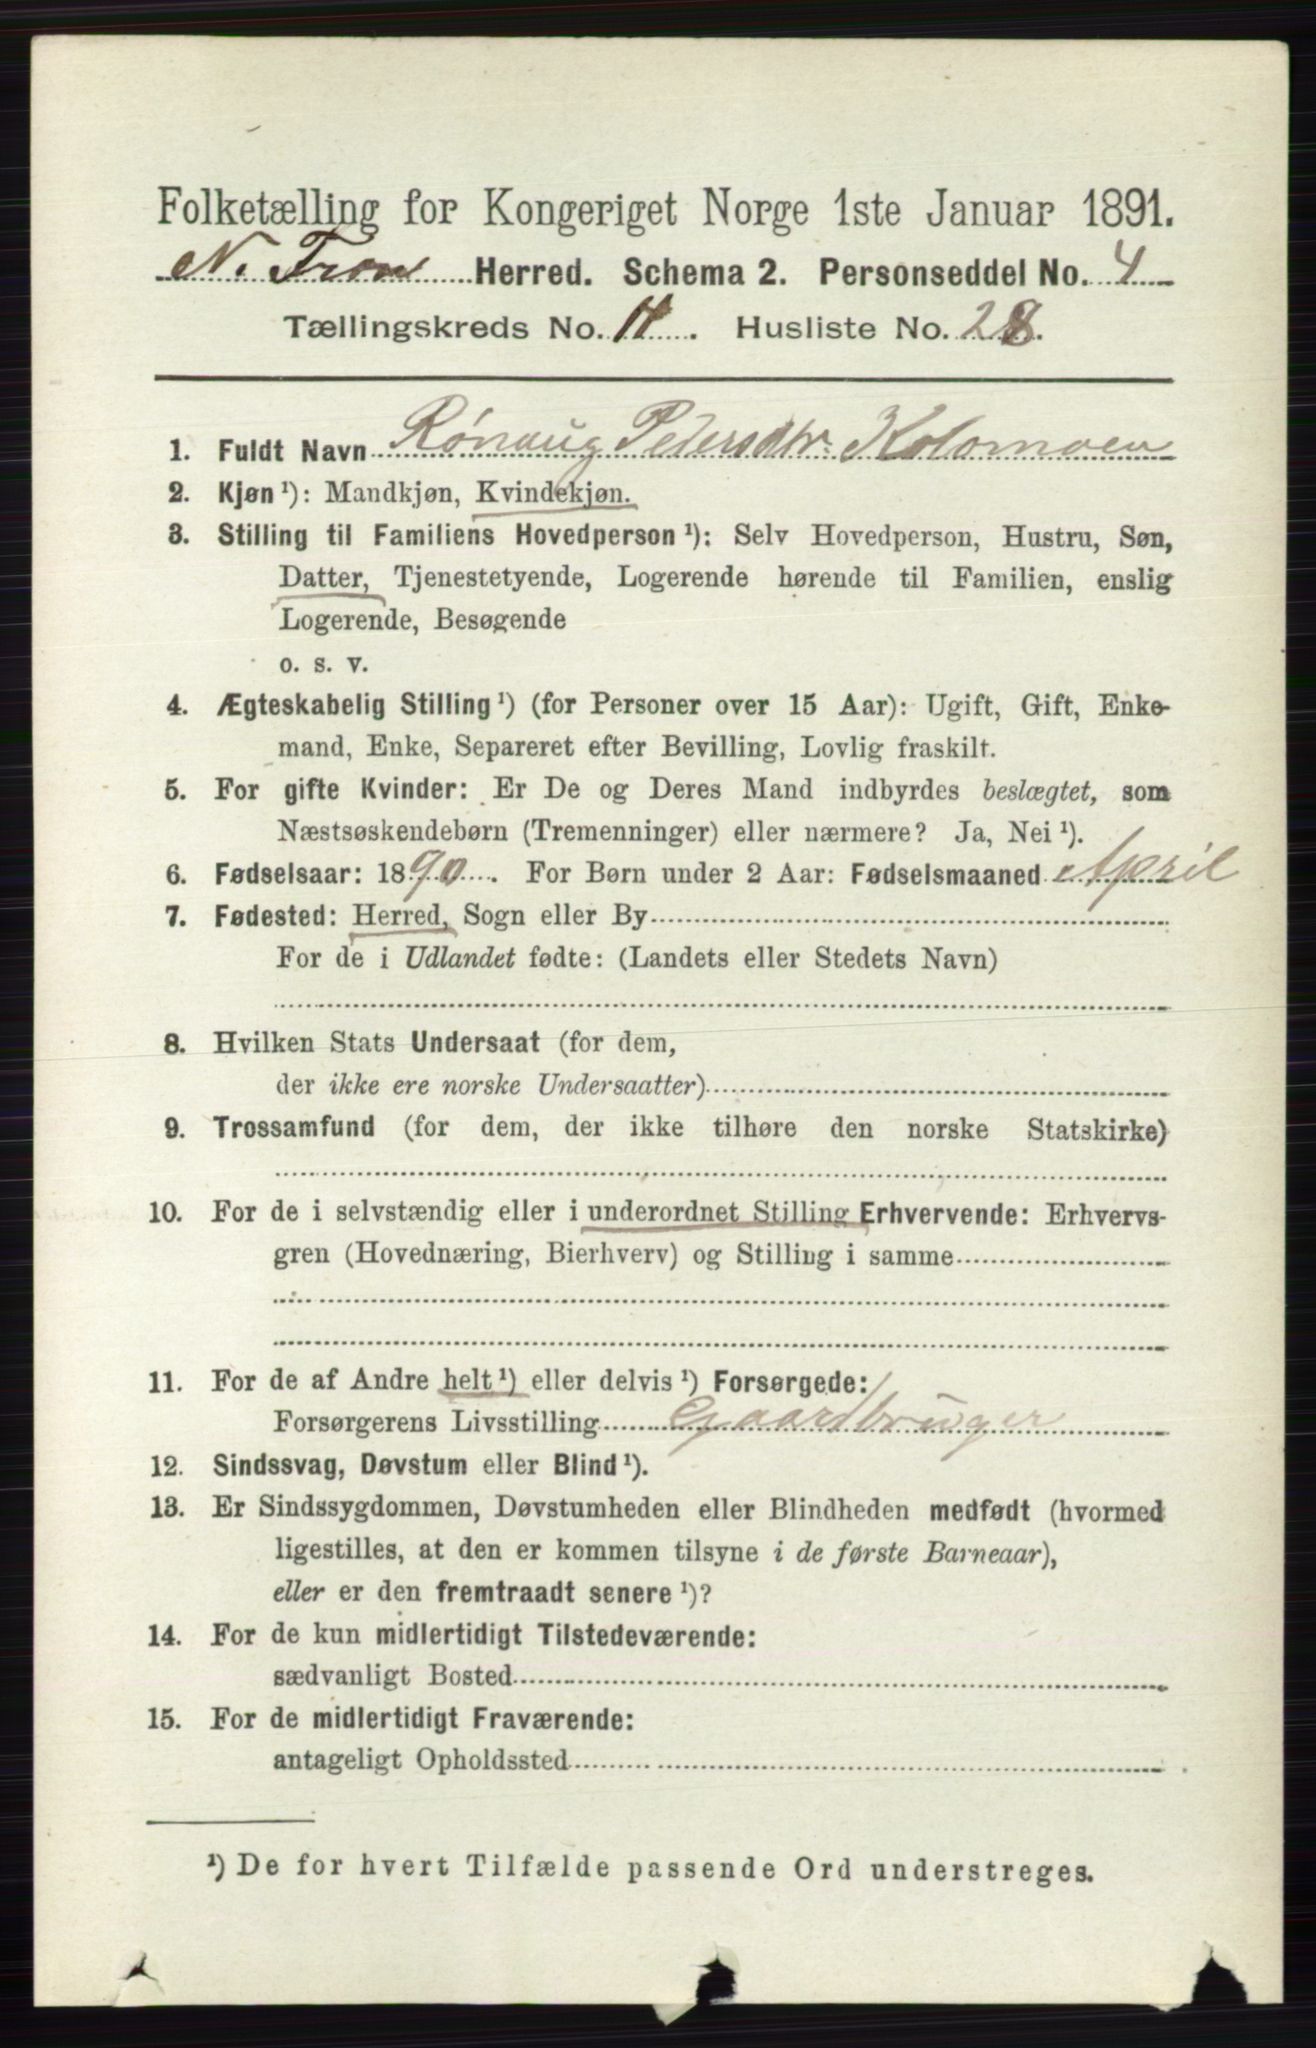 Folketælling for Kongeriget Norge 1ste Januar 1891.
N. Fron Herred. Schema 2. Personseddel No. 4
Tællingskreds No. 11. Husliste No. 28.
1. Fuldt Navn Rønaug Pedersdtr. Kolomoen
2. Kjøn ¹): Mandkjøn, Kvindekjøn.
3. Stilling til Familiens Hovedperson ¹): Selv Hovedperson, Hustru, Søn,
Datter, Tjenestetyende, Logerende hørende til Familien, enslig
Logerende, Besøgende
o. s. v.
4. Ægteskabelig Stilling ¹) (for Personer over 15 Aar): Ugift, Gift, Enke-
mand, Enke, Separeret efter Bevilling, Lovlig fraskilt.
5. For gifte Kvinder: Er De og Deres Mand indbyrdes beslægtet, som
Næstsøskendebørn (Tremenninger) eller nærmere? Ja, Nei ¹).
6. Fødselsaar: 1890. For Børn under 2 Aar: Fødselsmaaned April
7. Fødested: Herred, Sogn eller By
For de i Udlandet fødte: (Landets eller Stedets Navn)
8. Hvilken Stats Undersaat (for dem,
der ikke ere norske Undersaatter)
9. Trossamfund (for dem, der ikke tilhøre den norske Statskirke)
10. For de i selvstændig eller i underordnet Stilling Erhvervende: Erhvervs-
gren (Hovednæring, Bierhverv) og Stilling i samme
11. For de af Andre helt ¹) eller delvis ¹) Forsørgede:
Forsørgerens Livsstilling Gaardbruger
12. Sindssvag, Døvstum eller Blind ¹).
13. Er Sindssygdommen, Døvstumheden eller Blindheden medfødt (hvormed
ligestilles, at den er kommen tilsyne i de første Barneaar),
eller er den fremtraadt senere ¹)?
14. For de kun midlertidigt Tilstedeværende:
sædvanligt Bosted
15. For de midlertidigt Fraværende:
antageligt Opholdssted
¹) De for hvert Tilfælde passende Ord understreges.